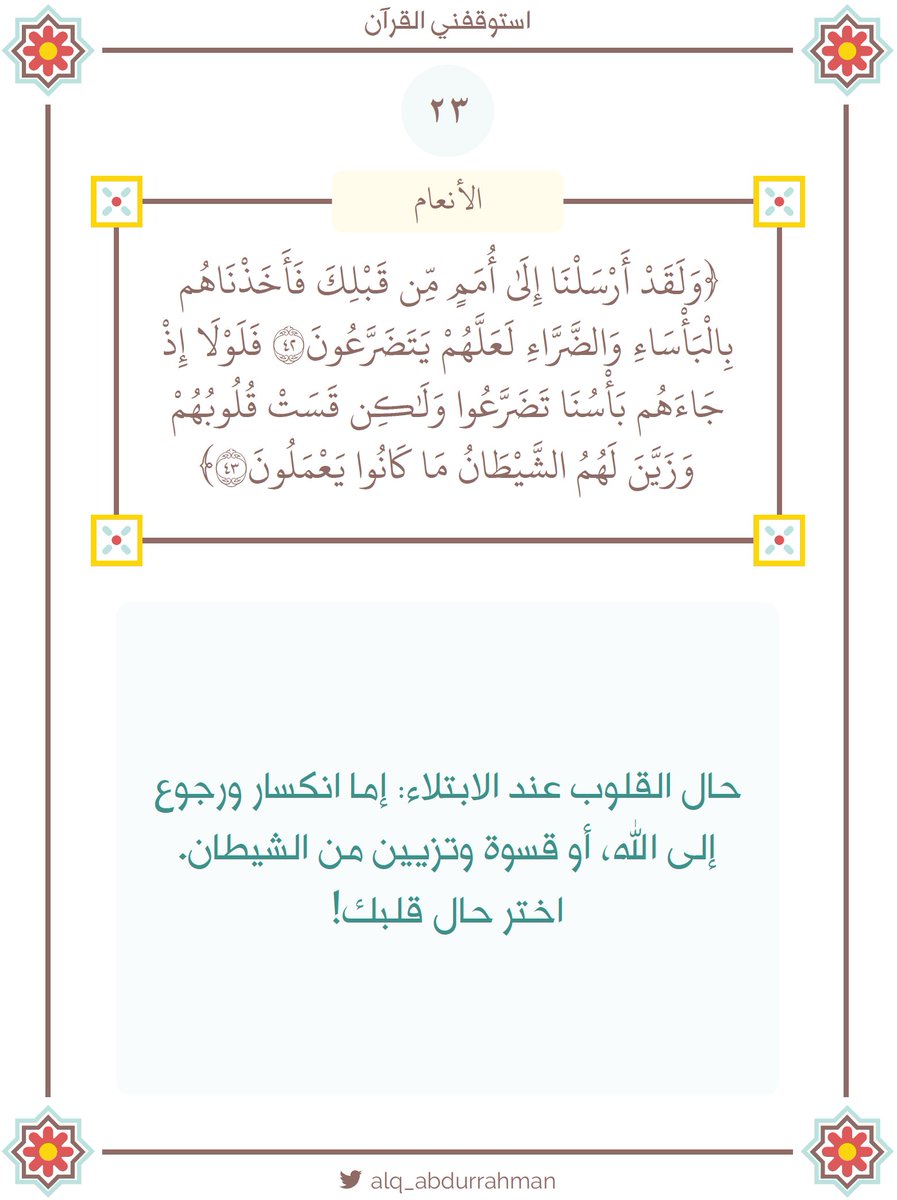 استوقفني القرآن
٢٣
الأنعام
﴿وَلَقَدْ أَرْسَلْنَا إِلَىٰ أُمَمٍ مِّن قَبْلِكَ فَأَخَذْنَاهُم
بِالْبَأْسَاءِ وَالضَّرَّاءِ لَعَلَّهُمْ يَتَضَرَّعُونَ۝٤٢ فَلَوْلَا إِذْ
جَاءَهُم بَأْسُنَا تَضَرَّعُوا وَلَٰكِن قَسَتْ قُلُوبُهُمْ
وَزَيَّنَ لَهُمُ الشَّيْطَانُ مَا كَانُوا يَعْمَلُونَ۝٤٣﴾
حال القلوب عند الابتلاء: إما انكسار ورجوع
إلى الله، أو قسوة وتزيين من الشيطان.
اختر حال قلبك!
alq_abdurrahman